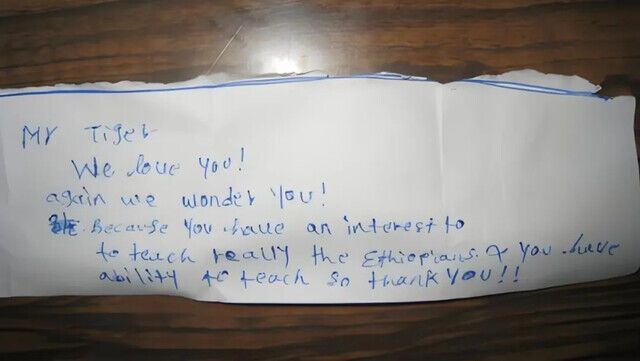 Mr Tiget
We love you!
again we wonder you!
Because you have an interest to
to teach really the Ethiopians & you have
ability to teach so thank you!!